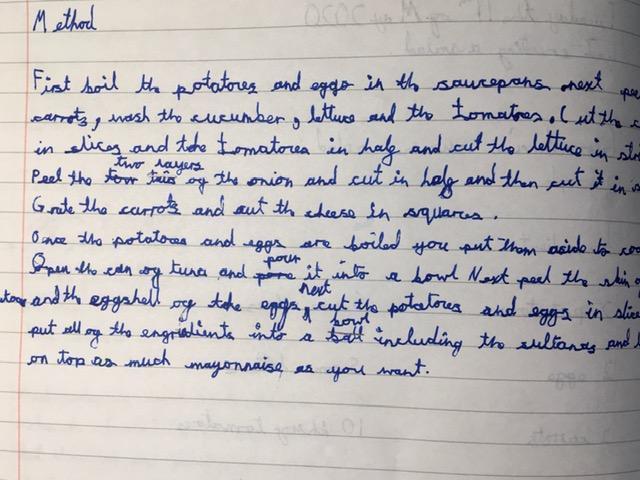 Method
First boil the potatoes and eggs in the saucepans next pee
carrots, wash the cucumber, lettuce and the tomatoes. Cut the c
in slices and the tomatoes in half and cut the lettuce in st
Peel the two layers of the onion and cut in half and then cut it in
Grate the carrots and cut th cheese in squares.
Once the potatoes and eggs are boiled you put them aside to coo
Open the can of tuna and pour it into a bowl Next peel the skin o
and the eggshell of the eggs, next cut the potatoes and eggs in slice
put all of the engridients into a bowl including the sultanas and
on top as much mayonnaise as you want.